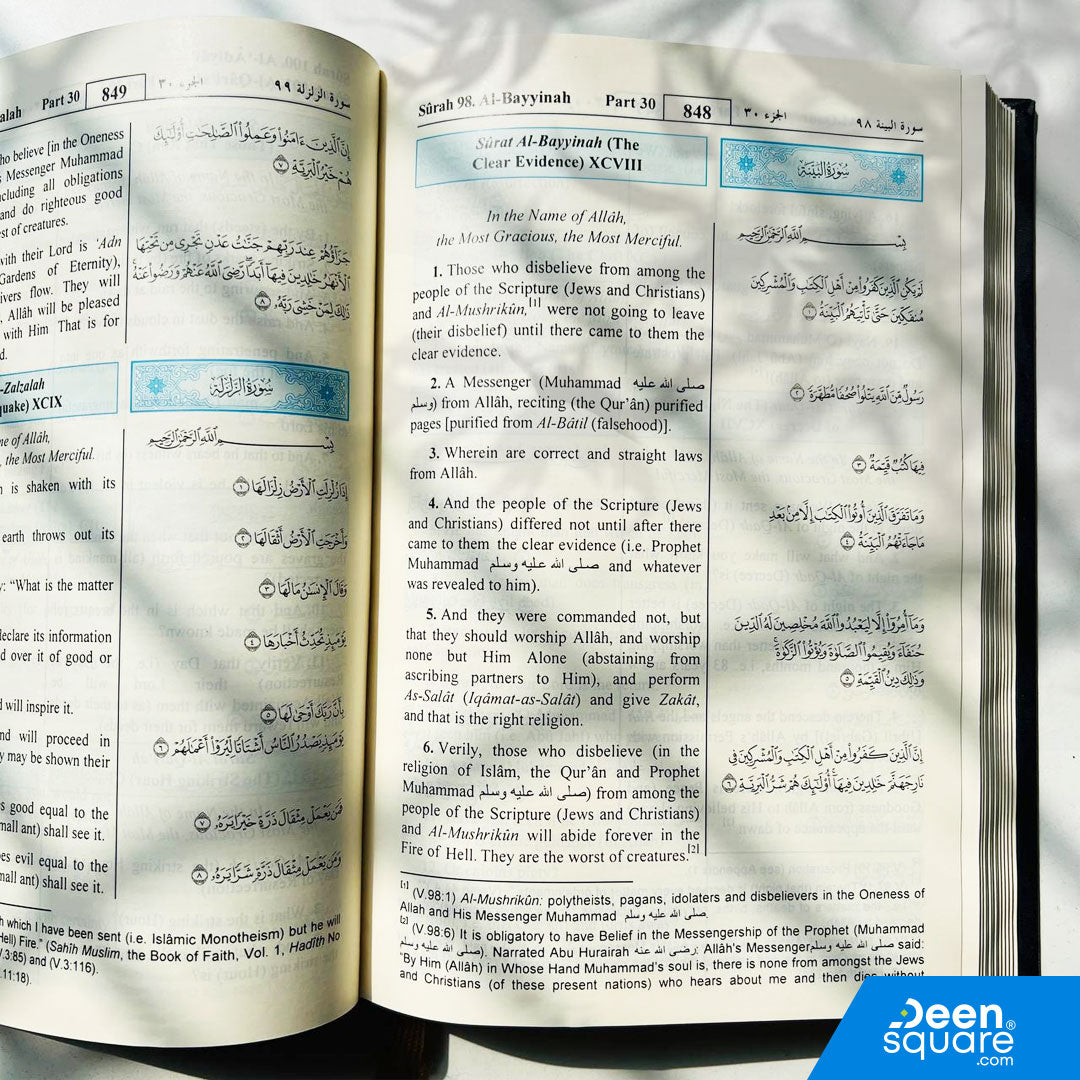 Sûrah 98. Al-Bayyinah Part 30 848 الجزء ٣٠ سورة البينة ٩٨
Sûrat Al-Bayyinah (The
Clear Evidence) XCVIII
In the Name of Allâh,
the Most Gracious, the Most Merciful.
1. Those who disbelieve from among the
people of the Scripture (Jews and Christians)
and Al-Mushrikûn,[1] were not going to leave
(their disbelief) until there came to them the
clear evidence.
2. A Messenger (Muhammad صلى الله عليه
وسلم) from Allâh, reciting (the Qur’ân) purified
pages [purified from Al-Bâtil (falsehood)].
3. Wherein are correct and straight laws
from Allâh.
4. And the people of the Scripture (Jews
and Christians) differed not until after there
came to them the clear evidence (i.e. Prophet
Muhammad صلى الله عليه وسلم and whatever
was revealed to him).
5. And they were commanded not, but
that they should worship Allâh, and worship
none but Him Alone (abstaining from
ascribing partners to Him), and perform
As-Salât (Iqâmat-as-Salât) and give Zakât,
and that is the right religion.
6. Verily, those who disbelieve (in the
religion of Islâm, the Qur’ân and Prophet
Muhammad صلى الله عليه وسلم) from among the
people of the Scripture (Jews and Christians)
and Al-Mushrikûn will abide forever in the
Fire of Hell. They are the worst of creatures.[2]
سُورَةُ البَيِّنَةِ
بِسْمِ اللَّهِ الرَّحْمَٰنِ الرَّحِيمِ
لَمْ يَكُنِ الَّذِينَ كَفَرُوا مِنْ أَهْلِ الْكِتَابِ وَالْمُشْرِكِينَ
مُنفَكِّينَ حَتَّىٰ تَأْتِيَهُمُ الْبَيِّنَةُ ١
رَسُولٌ مِّنَ اللَّهِ يَتْلُوا صُحُفًا مُّطَهَّرَةً ٢
فِيهَا كُتُبٌ قَيِّمَةٌ ٣
وَمَا تَفَرَّقَ الَّذِينَ أُوتُوا الْكِتَابَ إِلَّا مِن بَعْدِ
مَا جَاءَتْهُمُ الْبَيِّنَةُ ٤
وَمَا أُمِرُوا إِلَّا لِيَعْبُدُوا اللَّهَ مُخْلِصِينَ لَهُ الدِّينَ
حُنَفَاءَ وَيُقِيمُوا الصَّلَاةَ وَيُؤْتُوا الزَّكَاةَ
وَذَٰلِكَ دِينُ الْقَيِّمَةِ ٥
إِنَّ الَّذِينَ كَفَرُوا مِنْ أَهْلِ الْكِتَابِ وَالْمُشْرِكِينَ فِي
نَارِ جَهَنَّمَ خَالِدِينَ فِيهَا أُولَٰئِكَ هُمْ شَرُّ الْبَرِيَّةِ ٦
[1] (V.98:1) Al-Mushrikûn: polytheists, pagans, idolaters and disbelievers in the Oneness of
Allah and His Messenger Muhammad صلى الله عليه وسلم.
[2] (V.98:6) It is obligatory to have Belief in the Messengership of the Prophet (Muhammad
صلى الله عليه وسلم). Narrated Abu Hurairah رضى الله عنه: Allâh's Messenger صلى الله عليه وسلم said:
“By Him (Allâh) in Whose Hand Muhammad’s soul is, there is none from amongst the Jews
and Christians (of these present nations) who hears about me and then dies without
alah Part 30 849 الجزء ٣٠ سورة الزلزلة ٩٩
ho believe [in the Oneness
s Messenger Muhammad
ncluding all obligations
and do righteous good
est of creatures.
with their Lord is ‘Adn
Gardens of Eternity),
ivers flow. They will
, Allâh will be pleased
with Him That is for
d.
-Zalzalah
quake) XCIX
me of Allâh,
, the Most Merciful.
n is shaken with its
earth throws out its
y: “What is the matter
declare its information
d over it of good or
d will inspire it.
nd will proceed in
y may be shown their
s good equal to the
mall ant) shall see it.
es evil equal to the
mall ant) shall see it.
إِنَّ الَّذِينَ آمَنُوا وَعَمِلُوا الصَّالِحَاتِ أُولَٰئِكَ
هُمْ خَيْرُ الْبَرِيَّةِ ٧
جَزَاؤُهُمْ عِندَ رَبِّهِمْ جَنَّاتُ عَدْنٍ تَجْرِي مِن تَحْتِهَا
الْأَنْهَارُ خَالِدِينَ فِيهَا أَبَدًا رَّضِيَ اللَّهُ عَنْهُمْ وَرَضُوا عَنْهُ
ذَٰلِكَ لِمَنْ خَشِيَ رَبَّهُ ٨
سُورَةُ الزَّلْزَلَةِ
بِسْمِ اللَّهِ الرَّحْمَٰنِ الرَّحِيمِ
إِذَا زُلْزِلَتِ الْأَرْضُ زِلْزَالَهَا ١
وَأَخْرَجَتِ الْأَرْضُ أَثْقَالَهَا ٢
وَقَالَ الْإِنسَانُ مَا لَهَا ٣
يَوْمَئِذٍ تُحَدِّثُ أَخْبَارَهَا ٤
بِأَنَّ رَبَّكَ أَوْحَىٰ لَهَا ٥
يَوْمَئِذٍ يَصْدُرُ النَّاسُ أَشْتَاتًا لِّيُرَوْا أَعْمَالَهُمْ ٦
فَمَن يَعْمَلْ مِثْقَالَ ذَرَّةٍ خَيْرًا يَرَهُ ٧
وَمَن يَعْمَلْ مِثْقَالَ ذَرَّةٍ شَرًّا يَرَهُ ٨
h which I have been sent (i.e. Islâmic Monotheism) but he will
Hell) Fire.” (Sahîh Muslim, the Book of Faith, Vol. 1, Hadîth No
V.3:85) and (V.3:116).
.11:18).
Deen
square®
.com